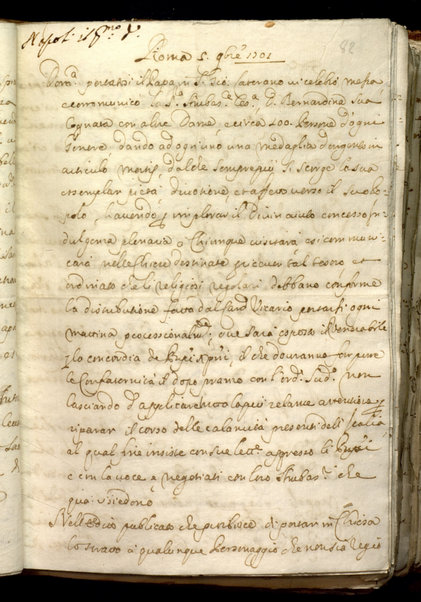 Napoli 18
82
Roma 5. 9bre 1701
il Papa in S. Gio: Laterano vi celebrò messa
e communicò la Sra. Ambas.ce Ces.a D. Bernardina sua
Cognata con altre Dame, e circa 400. Persone d'ogni
genere dando ad ogni uno una medaglia d'
articulo mortis, dal che sempre più si scorge la sua
essemplar pietà divotione et affetto verso il suo Po-
polo, havendo p implorar il Divin aiuto concesso In-
dulgenza plenaria a Chiunque visitarà e si commu-
carà nelle Chiese destinate tal tesoro et
ordinato che li religiosi regolari debbano conforme
la distributione fatta dal Card. Vicario portarsi ogni
mattina processionalm.te ove sarà esposto il Venerabile
p la concordia de Prpi Xpni, il che dovranno far pure
le Confraternita il dopo pranzo con l'ord.e sud.o, non
lasciando d'applicare
riparar il corso delle calamità presenti dell'Italia
al qual fine insiste con sue lett.e appresso li Prpi
e con la voce, e negotiati con loro Ambas.ri che
qua risiedono
Nell'editto publicato che proibisce di portar in Chiesa
lo strato a qualunque Personaggio che non sia Regio